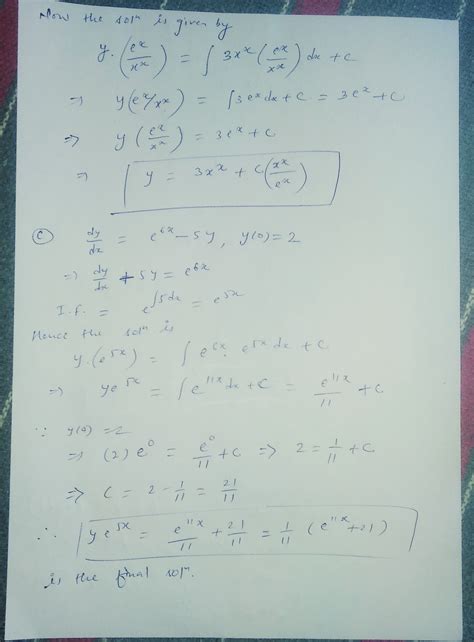 Now the solⁿ is given by
y. (eˣ/xˣ) = ∫ 3xˣ (eˣ/xˣ) dx + c
⇒ y(eˣ/xˣ) = ∫3eˣdx + C = 3eˣ + C
⇒ y (eˣ/xˣ) = 3eˣ + C
⇒ y = 3xˣ + C(xˣ/eˣ)
(C) dy/dx = e⁶ˣ - 5y, y(0) = 2
⇒ dy/dx + 5y = e⁶ˣ
I.f. = e^∫5dx = e⁵ˣ
Hence the solⁿ is
y.(e⁵ˣ) = ∫ e⁶ˣ. e⁵ˣ dx + C
⇒ ye⁵ˣ = ∫e¹¹ˣ dx + C = e¹¹ˣ/11 + C
∵ y(0) = 2
⇒ (2) e⁰ = e⁰/11 + C ⇒ 2 = 1/11 + C
⇒ C = 2 - 1/11 = 21/11
∴ ye⁵ˣ = e¹¹ˣ/11 + 21/11 = 1/11 (e¹¹ˣ + 21)
is the final solⁿ.